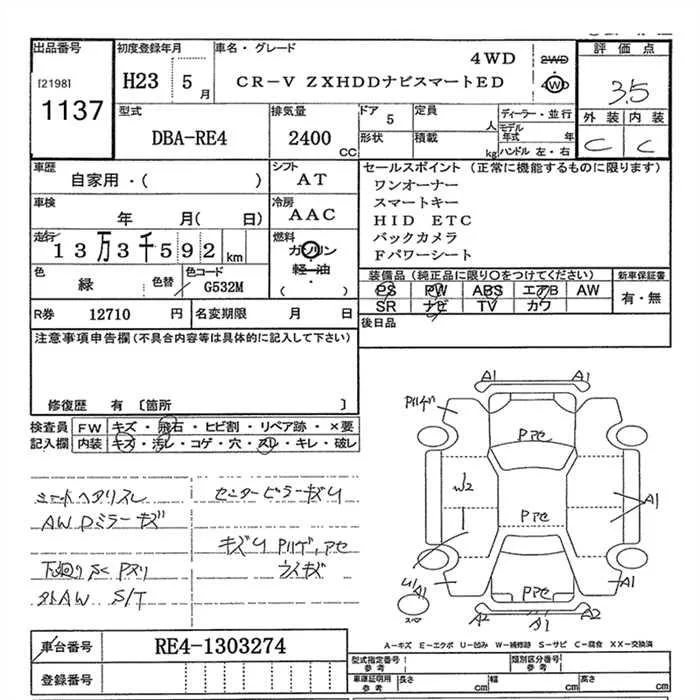 出品番号
[2198]
1137
初度登録年月
H23 5月
車名・グレード
4WD
CR-V ZXHDDナビスマートED
2WD
4WD
評価点
3.5
外装 内装
C C
型式
DBA-RE4
排気量
2400
CC
ドア 5
形状
定員
人
積載
kg
ディーラー・並行
モデル年式 年
ハンドル 左・右
車歴
自家用・( )
シフト
AT
車検
年 月( 日)
冷房
AAC
走行
13万3千592km
燃料
ガソリン
軽油
( )
色
緑
色替
色コード
G532M
R券 12710 円
名変期限 月 日
セールスポイント (正常に機能するものに限ります)
ワンオーナー
スマートキー
HID ETC
バックカメラ
Fパワーシート
装備品 (純正品に限り○をつけてください)
新車保証書
PS PW ABS エアB AW
SR ナビ TV カワ
有・無
後日品
注意事項申告欄 (不具合内容等は具体的に記入して下さい)
修復歴 有 〔箇所 〕
検査員記入欄
FW キズ・飛石・ヒビ割・リペア跡・×要
内装 キズ・汚レ・コゲ・穴・スレ・キレ・破レ
シートヘタリスレ
センターピラーキズU
AW Dミラーキズ
キズU Pハゲ, アセ
下廻りSC Pヌリ
ライキズ
外AW S/T
A1 A1
Pハゲ
Pアセ
W2
Pアセ
A1
U1
A1
Pアセ
A1
A2 A1 A2
スペア
A-キズ E-エクボ U-凹み W-補修跡 S-サビ C-腐食 XX-交換済
車台番号
RE4-1303274
登録番号
型式指定番号
参考
類別区分番号
参考
車庫証明用
参考
長さ cm
幅 cm
高さ cm